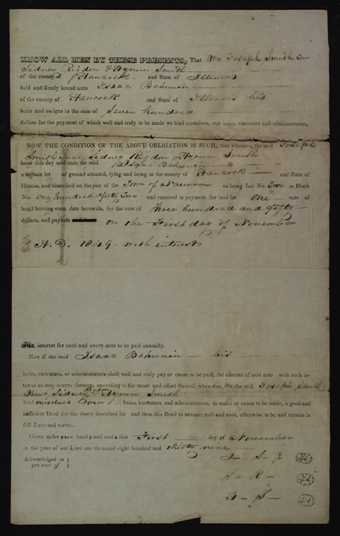 KNOW ALL MEN BY THESE PRESENTS, That We Joseph Smith Jun
Sidney Rigdon & Hyrum Smith
of the county of Hancock and State of Illinois
held and firmly bound unto Isaac Behunin
of the county of Hancock and State of Illinois his
heirs and assigns in the sum of Seven hundred
dollars for the payment of which well and truly to be made we bind ourselves, our heirs, executors and administrators,
NOW THE CONDITION OF THE ABOVE OBLIGATION IS SUCH, that whereas, the said Joseph
Smith Jun. Sidney Rigdon Hyrum Smith
have this day sold unto the said Isaac Behunin
a certain lot of ground situated, lying and being in the county of Hancock and State of
Illinois, and described on the plat of the Town of Nauvoo as being Lot No. Two in Block
No. One hundred & fifty Two and received in payment for said lot one note of
hand bearing even date herewith, for the sum of Three hundred and fifty
dollars, and payable on the First day of November
A.D. 1849 with interest
The interest for each and every note to be paid annually.
Now if the said Isaac Behunin his
heirs, executors, or administrators shall well and truly pay or cause to be paid, the amount of said note with such interest
according to the tenor and effect thereof, when due, We the said Joseph Smith
Jun. Sidney Rigdon Hyrum Smith
bind ourselves Our heirs, executors and administrators, to make or cause to be made, a good and
sufficient Deed for the above described lot and then this Bond to be null and void, otherwise to be and remain in
full force and virtue.
Given under our hands and seals this First day of November
in the year of our Lord one thousand eight hundred and thirty nine
Acknowledged in
presence of
J. S. J
S. R.
H. S.